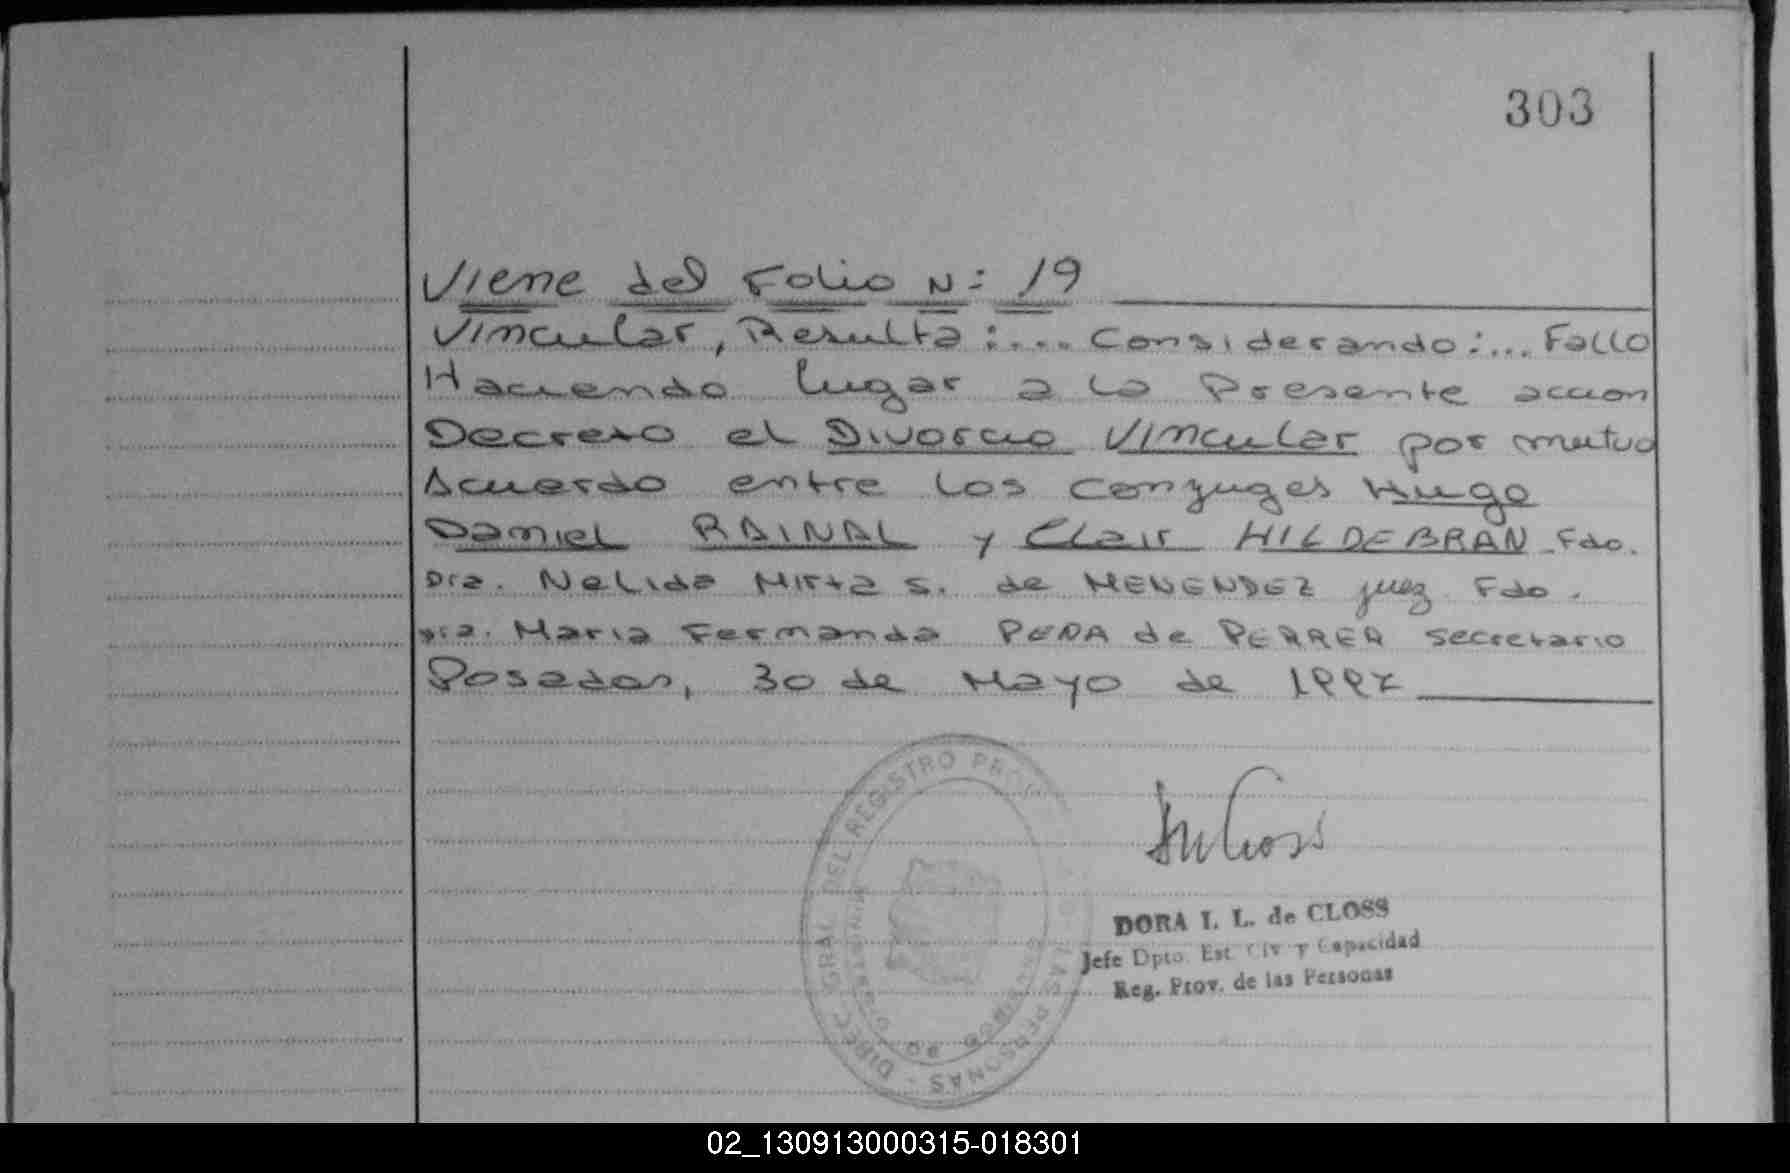 303
Viene del Folio N: 19
Vincular, Resulta:.... Considerando:... Fallo
Haciendo lugar a la Presente accion
Decreto el Divorcio Vincular por mutuo
Acuerdo entre los conyuges Hugo
Daniel RAINAL y Clair HILDEBRAN Fdo.
Dra. Nelida Mirta S. de MENENDEZ juez Fdo.
Dra. Maria Fernanda de secretario
Posadas, 30 de Mayo de
DIREC. GRAL. DEL REGISTRO PROV. LAS PERSONAS
DORA I. L. de CLOSS
Jefe Dpto. Est. Civ. y Capacidad
Reg. Prov. de las Personas
02_130913000315-018301